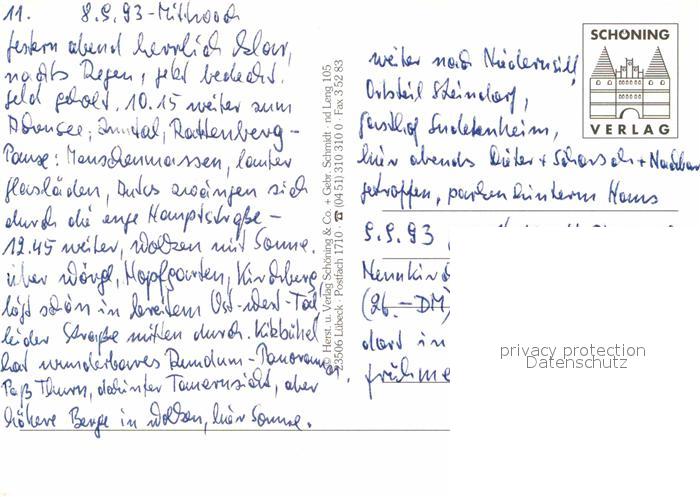 11. 8.9.93 - Mittwoch
gestern abend herrlich klar,
nachts Regen, jetzt bedeckt.
Geld geholt. 10.15 weiter zum
Achensee, Inntal, Rattenberg -
Pause: Menschenmassen, lauter
Glasläden, Autos zwängen sich
durch die enge Hauptstraße -
12.45 weiter, Wolken mit Sonne.
über Wörgl, Hopfgarten, Kirchberg,
liegt schön in breitem Ost-West-Tal,
leider Straße mitten durch. Kitzbühel
hat wunderbares Rundum-Panorama,
Paß Thurn, dahinter Tauernsicht, aber
höhere Berge in Wolken, hier Sonne.
© Herst. u. Verlag Schöning & Co. + Gebr. Schmidt · nd Leng 105
23506 Lübeck · Postfach 1710 · ☎ (04 51) 310 310 0 · Fax 3 52 83
SCHÖNING
VERLAG
weiter nach Niedernsill,
Ortsteil Steindorf,
Gasthof Sudetenheim,
hier abends + + Nachbar
getroffen, parken hinterm Haus
9.9.93
(26.- DM)
dort in
frühme
privacy protection
Datenschutz